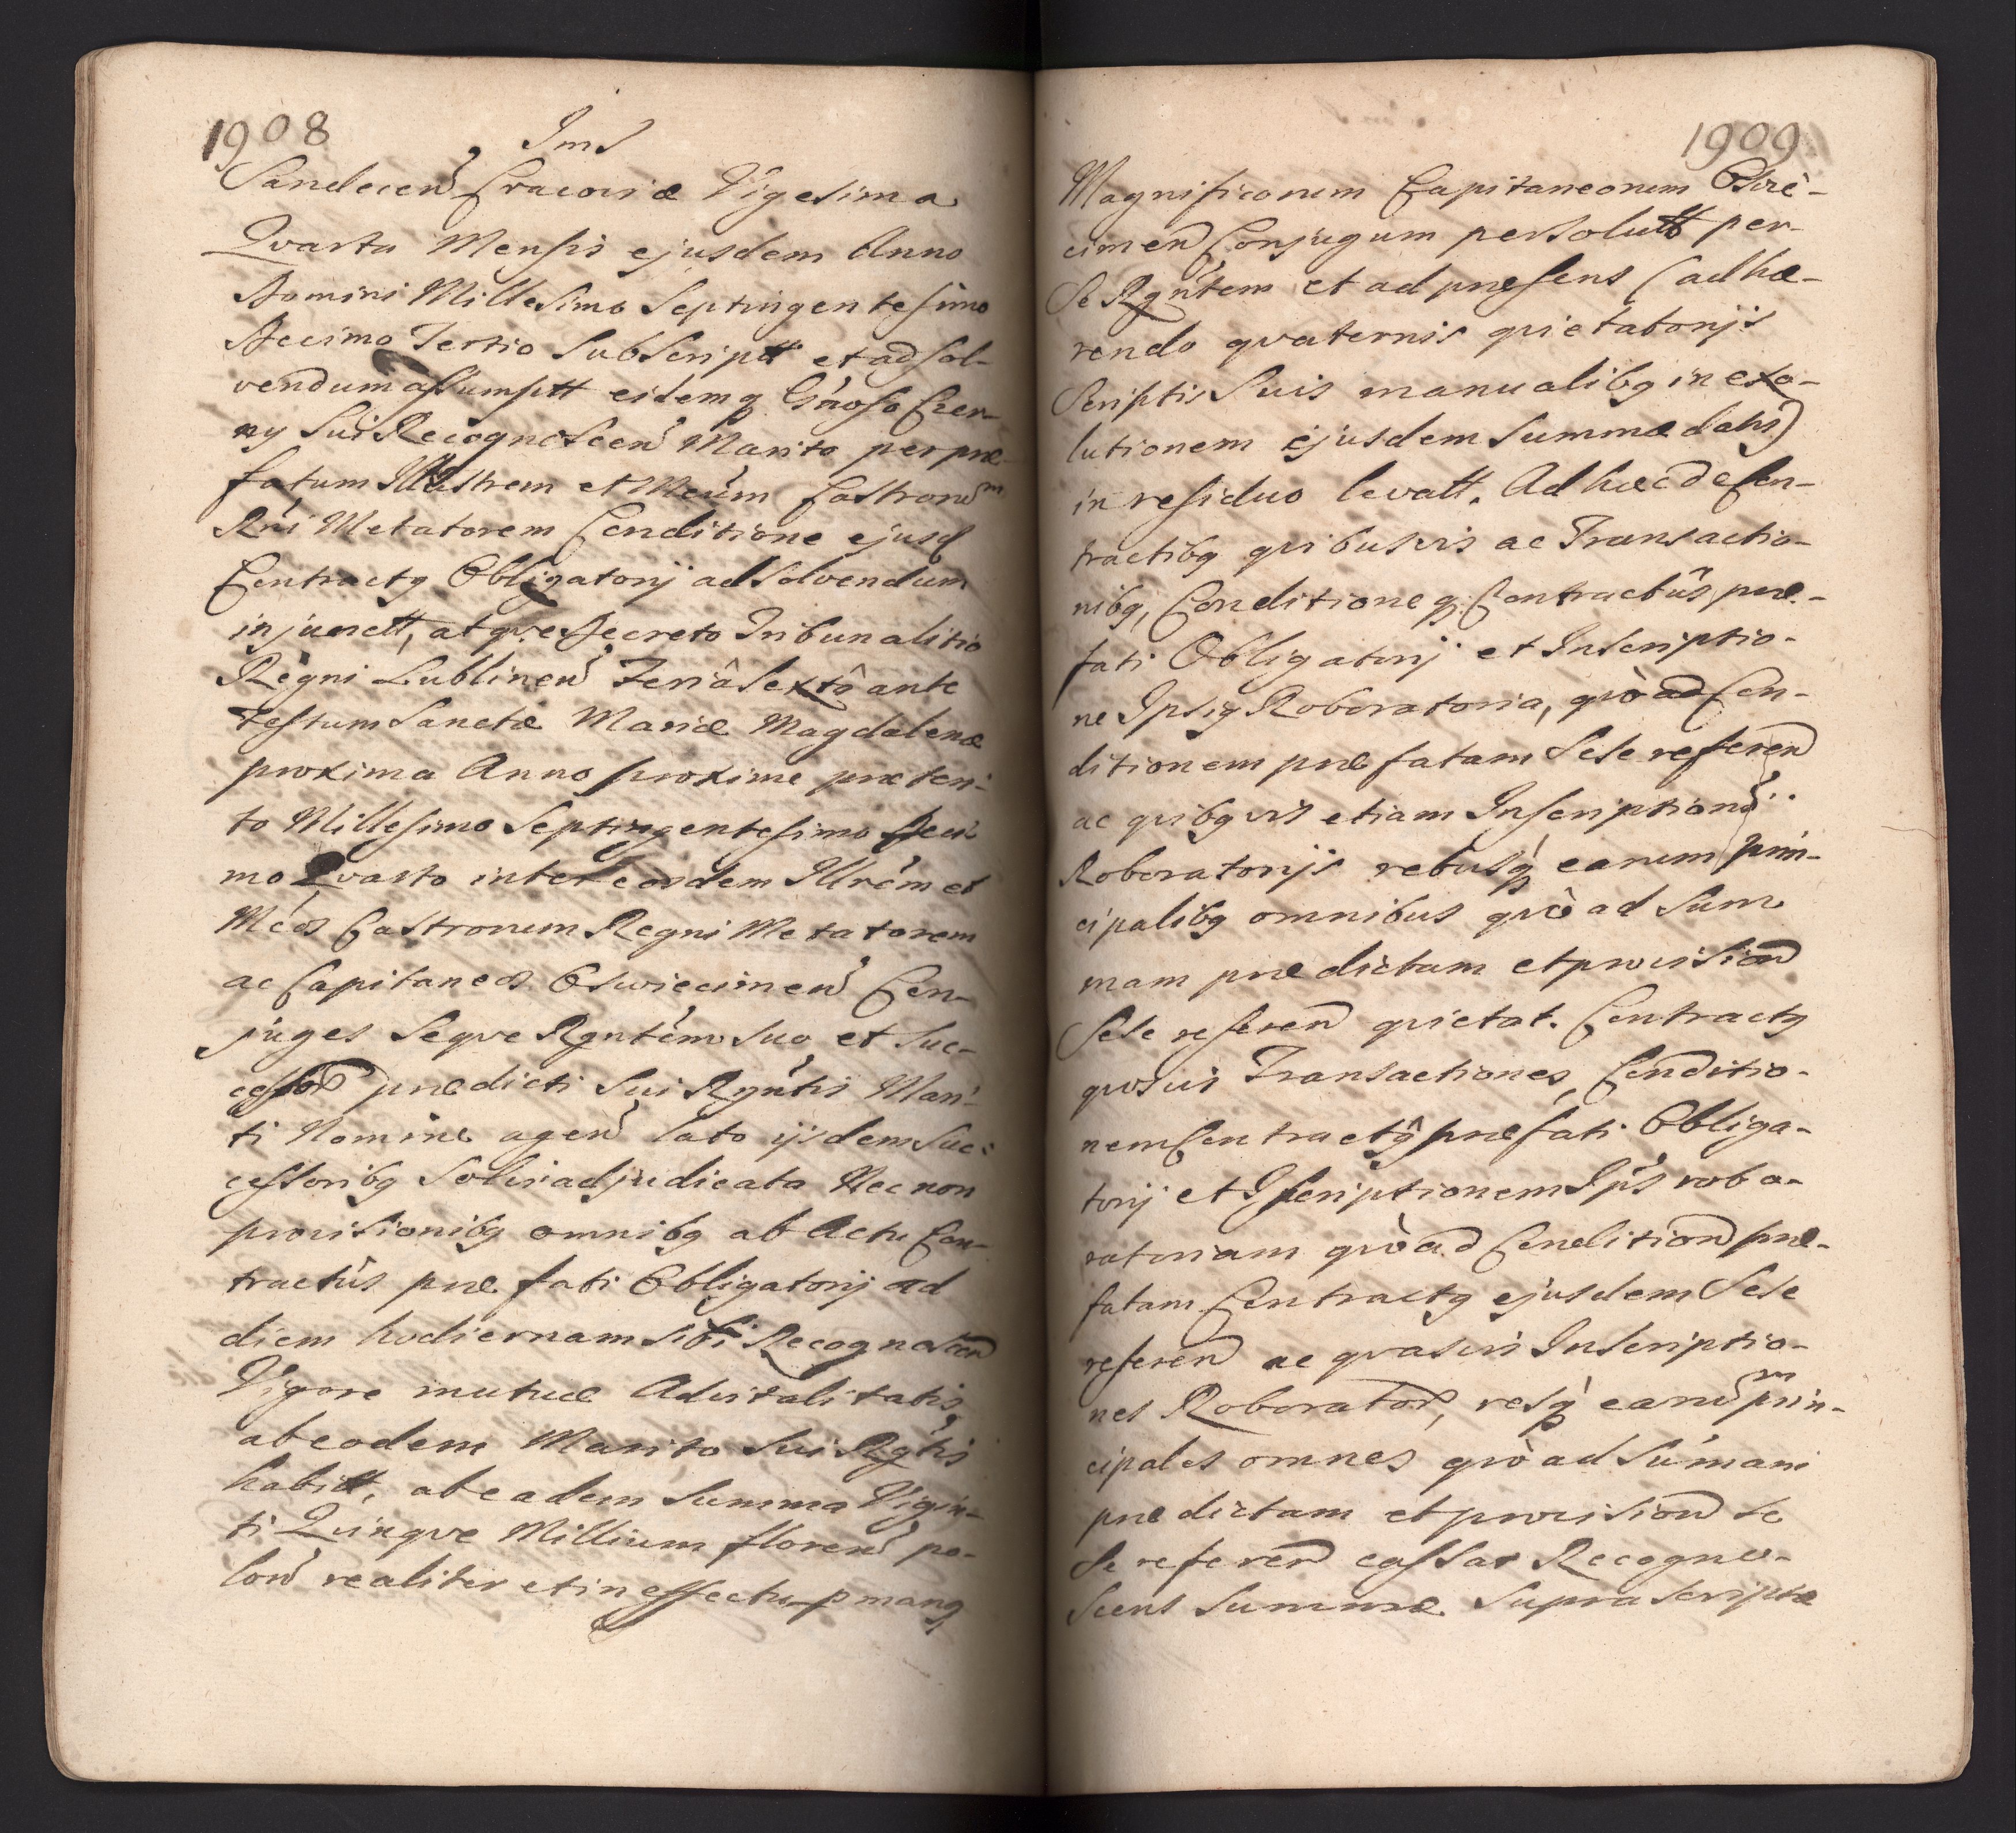 1908
Ims
Sandecen Cracoviæ Vigesima
Qvarta Mensis ejusdem Anno
Domini Millesimo Septingentesimo
Decimo Tertio Subscriptt et ad sol-
vendum assumptt eidemq Gnoso Czer-
ny Sui Recognoscen Marito per præ-
fatum Illustrem et Mcum Castrorum
Rni Metatorem Conditione ejusd
Contractq Obligatorij ad solvendum
injunctt, atqve Decreto Tribunalitio
Regni Lublinen Feriâ Sextâ ante
Festum Sanctæ Mariæ Magdalenæ
proxima Anno proxime præteri-
to Millesimo Septingentesimo Deci
mo Qvarto inter eosdem Illrem et
Mcos Castrorum Regni Metatorem
ac Capitaneos Oswiecimen Con-
juges Seqve Rgntem suo et Suc-
cessor prædicti Sui Rgntis Mari-
ti Nomine agen lato ijsdem Suc-
cessoribq Solvi adjudicata Nec non
provisionibq omnibq ab Actu Con-
tractûs præfati Obligatorij ad
diem hodiernam sibi Recognoscen
Vigore mutuæ Advitalitatis
ab eodem Marito Sui Rgtis
habitt, ab eadem Summa Vigin-
ti Qvinqve Millium floren po-
lon realiter et in effectu p manq
1909
Magnificorum Capitaneorum Oswie-
cimen Conjugum persolutt per-
Se Rgntem et ad præsens (adhæ-
rendo qvaternis qvietatorijs
Scriptis Suis manualibq in exo-
lutionem ejusdem Summæ datis)
in residuo levatt. Ad hæc de Con-
tractibq qvibusvis ac Transactio-
nibq, Conditioneq Contractûs præ-
fati Obligatorij et Inscriptio-
ne Ipsiq Roboratoria, qvò ad Con-
ditionem præfatam Sese referen
ac qvibqvis etiam Inscription
Roboratorijs rebusq earum prin-
cipalibq omnibus qvò ad Sum
mam prædictam et provision
Sese referen qvietat. Contractq
qvosvis Transactiones, Conditio-
nem Contractq præfati Obliga-
torij et Iscriptionem Ips robo-
ratoriam qvò ad Condition præ-
fatam Contractq ejusdem Sese
referen ac qvasvis Inscriptio-
nes Roborator, resq earum prin-
cipales omnes qvò ad Sumam
prædictam et provision se
se referen cassat Recogno-
scens Summæ Supra Scriptæ